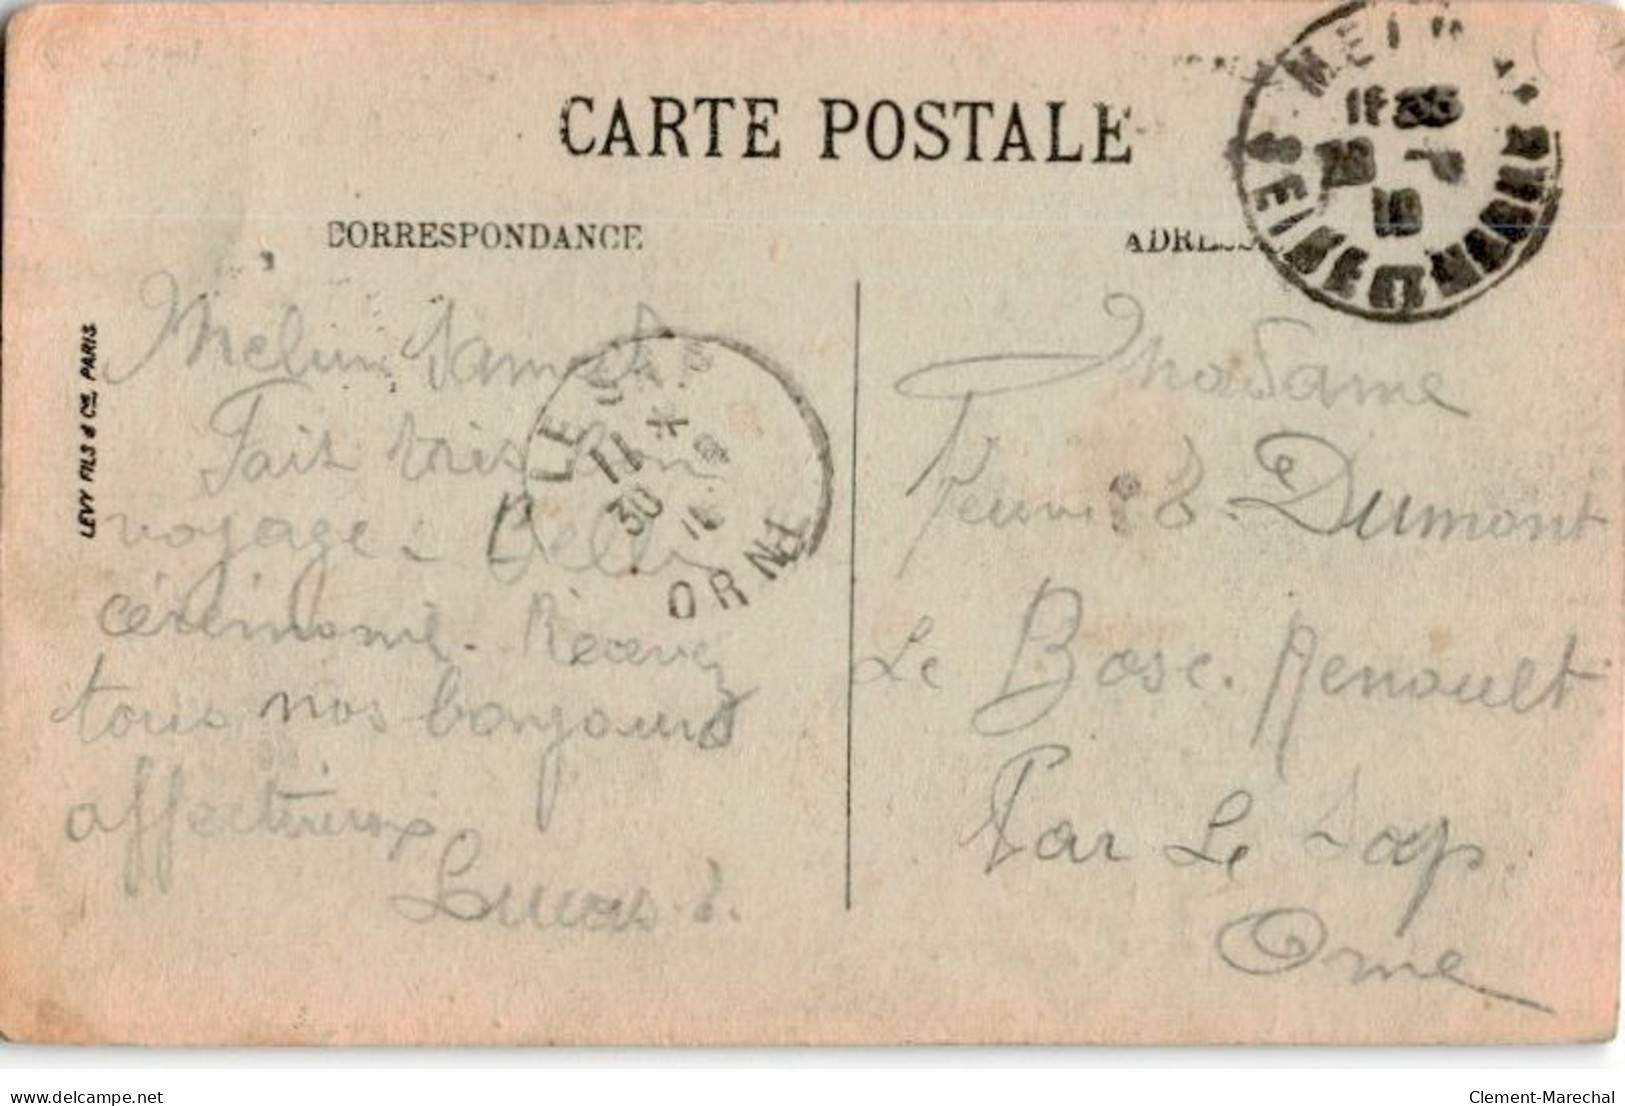 CARTE POSTALE
CORRESPONDANCE
ADRESSE
LEVY FILS & Cie, PARIS
Melun Samedi
Fait très bon
voyage - Belle
cérémonie. Recevez
tous nos bonjours
affectueux
Lucas
LE SAP
11 *
30
ORNE
SEINE
Madame
Veuve E. Dumont
Le Bosc. Renoult
Par Le Sap.
Orne
delcampe.net
Clement-Marechal